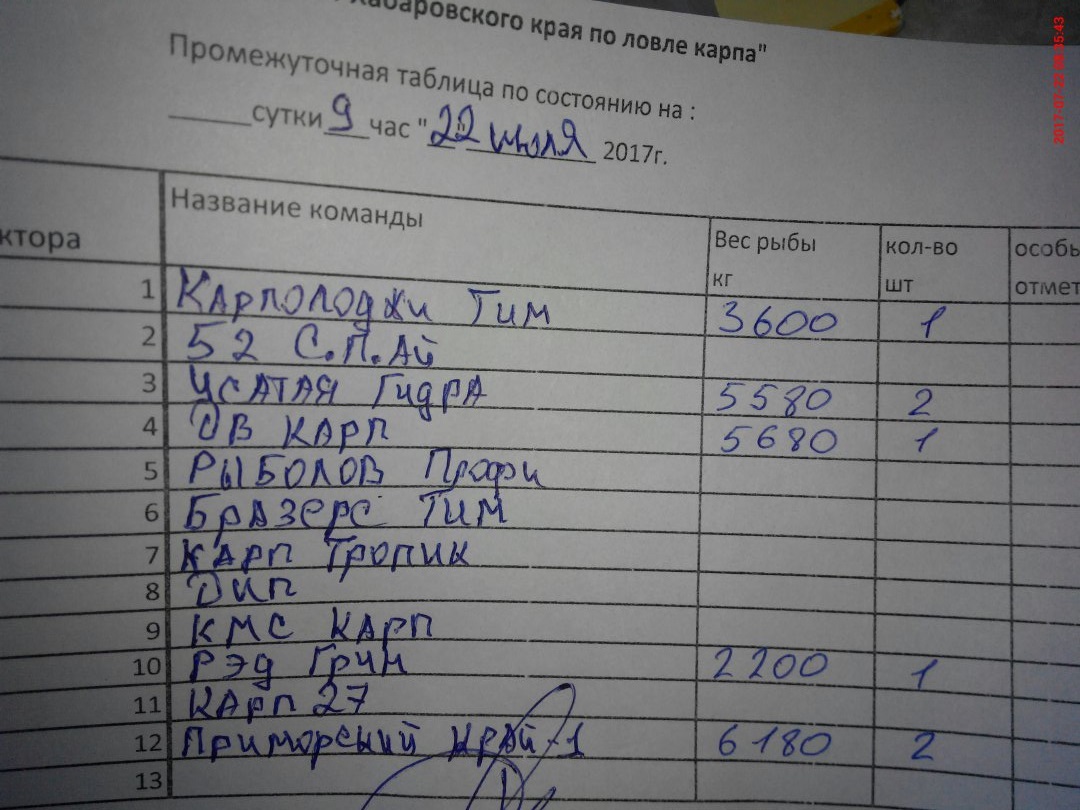 Хабаровского края по ловле карпа"
Промежуточная таблица по состоянию на :
______сутки 9 час " 22 " июля 2017г.
ктора Название команды Вес рыбы кг кол-во шт особы отмет
1 Карпологджи Тим 3600 1
2 52 С.П.Ай
3 Усатая Гидра 5580 2
4 ДВ карп 5680 1
5 Рыболов Профи
6 Бразерс Тим
7 Карп Тропик
8 Дип
9 КМС Карп
10 Рэд Грин 2200 1
11 Карп 27
12 Приморский край-1 6180 2
13